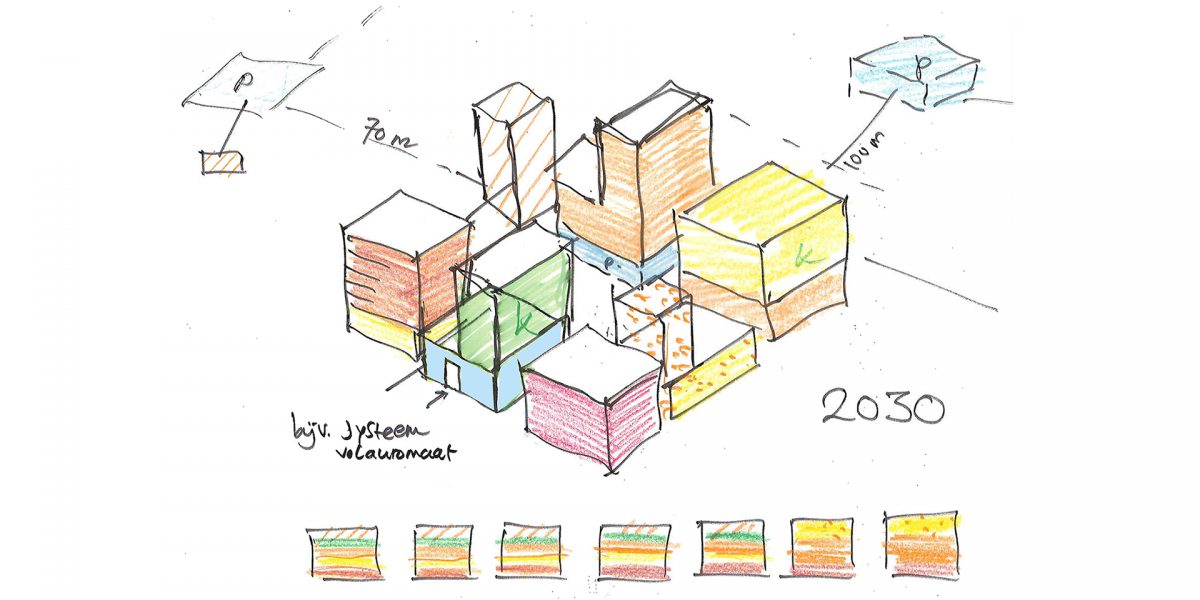 P
P
70 m
100 m
k
P.
k
2030
bijv. systeem
volautomaat